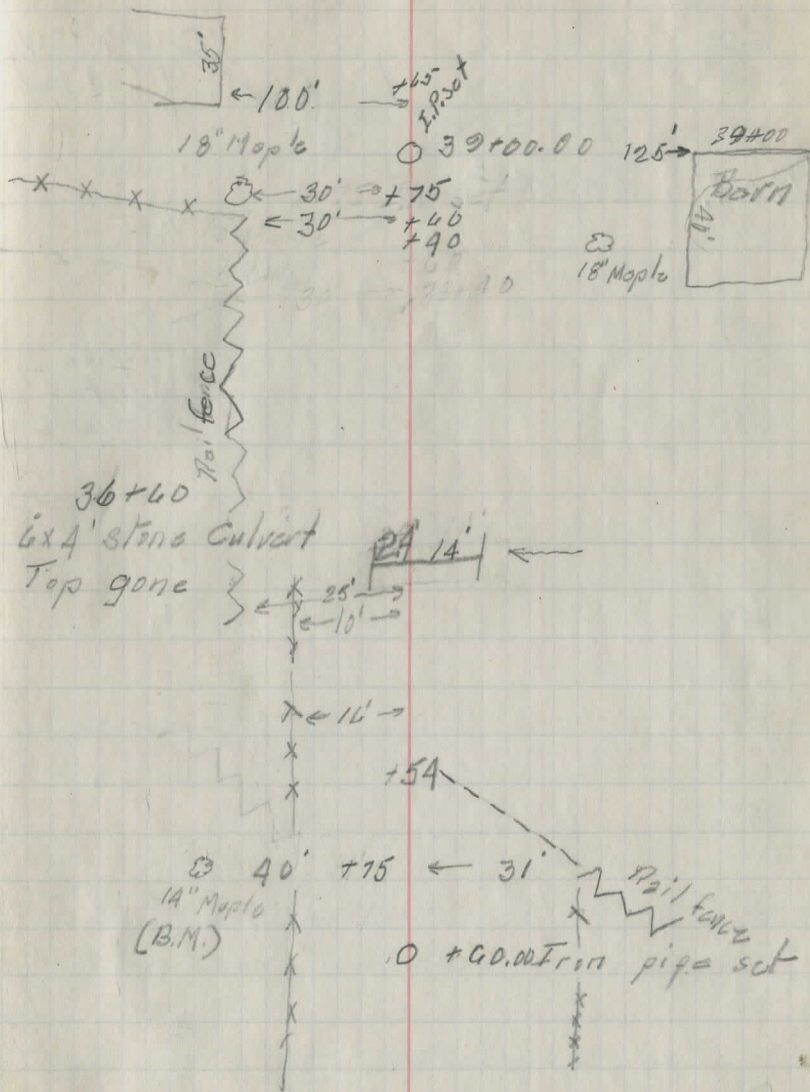 35'
100' +65
I.P. set
18" Maple
39+00.00 125' 39+00
Barn
40'
30' +75
30' +60
+40
18" Maple
Rail fence
36+60
6x4' stone Culvert
Top gone
24' 14'
25'
10'
16'
+54
40' +75 31'
14" Maple
(B.M.)
Rail fence
+60.00 Iron pipe set